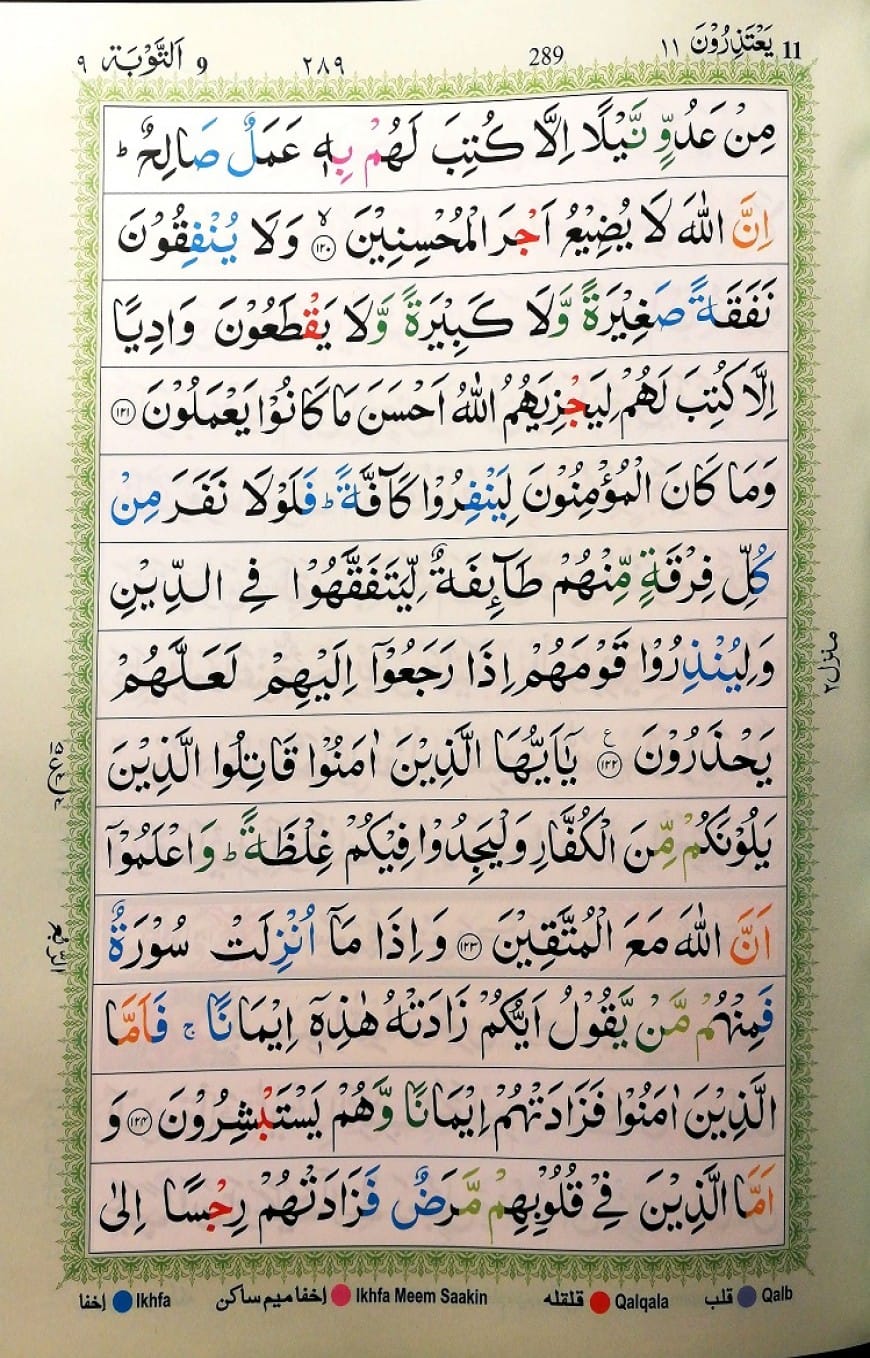 يَعْتَذِرُوْنَ ١١ 11
289
٢٨٩
اَلتَّوْبَة ٩ 9
مِنْ عَدُوٍّ نَّيْلًا اِلَّا كُتِبَ لَهُمْ بِهٖ عَمَلٌ صَالِحٌ ؕ
اِنَّ اللّٰهَ لَا يُضِيْعُ اَجْرَ الْمُحْسِنِيْنَ ۙ﴿١٢٠﴾ وَلَا يُنْفِقُوْنَ
نَفَقَةً صَغِيْرَةً وَّلَا كَبِيْرَةً وَّلَا يَقْطَعُوْنَ وَادِيًا
اِلَّا كُتِبَ لَهُمْ لِيَجْزِيَهُمُ اللّٰهُ اَحْسَنَ مَا كَانُوْا يَعْمَلُوْنَ ﴿١٢١﴾
وَمَا كَانَ الْمُؤْمِنُوْنَ لِيَنْفِرُوْا كَآفَّةً ؕ فَلَوْلَا نَفَرَ مِنْ
كُلِّ فِرْقَةٍ مِّنْهُمْ طَآئِفَةٌ لِّيَتَفَقَّهُوْا فِي الدِّيْنِ
وَلِيُنْذِرُوْا قَوْمَهُمْ اِذَا رَجَعُوْۤا اِلَيْهِمْ لَعَلَّهُمْ
يَحْذَرُوْنَ ﴿١٢٢﴾ ع يٰۤاَيُّهَا الَّذِيْنَ اٰمَنُوْا قَاتِلُوا الَّذِيْنَ
يَلُوْنَكُمْ مِّنَ الْكُفَّارِ وَلْيَجِدُوْا فِيْكُمْ غِلْظَةً ؕ وَاعْلَمُوْۤا
اَنَّ اللّٰهَ مَعَ الْمُتَّقِيْنَ ﴿١٢٣﴾ وَاِذَا مَاۤ اُنْزِلَتْ سُوْرَةٌ
فَمِنْهُمْ مَّنْ يَّقُوْلُ اَيُّكُمْ زَادَتْهُ هٰذِهٖۤ اِيْمَانًا ۚ فَاَمَّا
الَّذِيْنَ اٰمَنُوْا فَزَادَتْهُمْ اِيْمَانًا وَّهُمْ يَسْتَبْشِرُوْنَ ﴿١٢٤﴾ وَ
اَمَّا الَّذِيْنَ فِيْ قُلُوْبِهِمْ مَّرَضٌ فَزَادَتْهُمْ رِجْسًا اِلٰى
منزل ٢
الرُّبُع
قلب Qalb
قلقله Qalqala
اخفا ميم ساكن Ikhfa Meem Saakin
اخفا Ikhfa